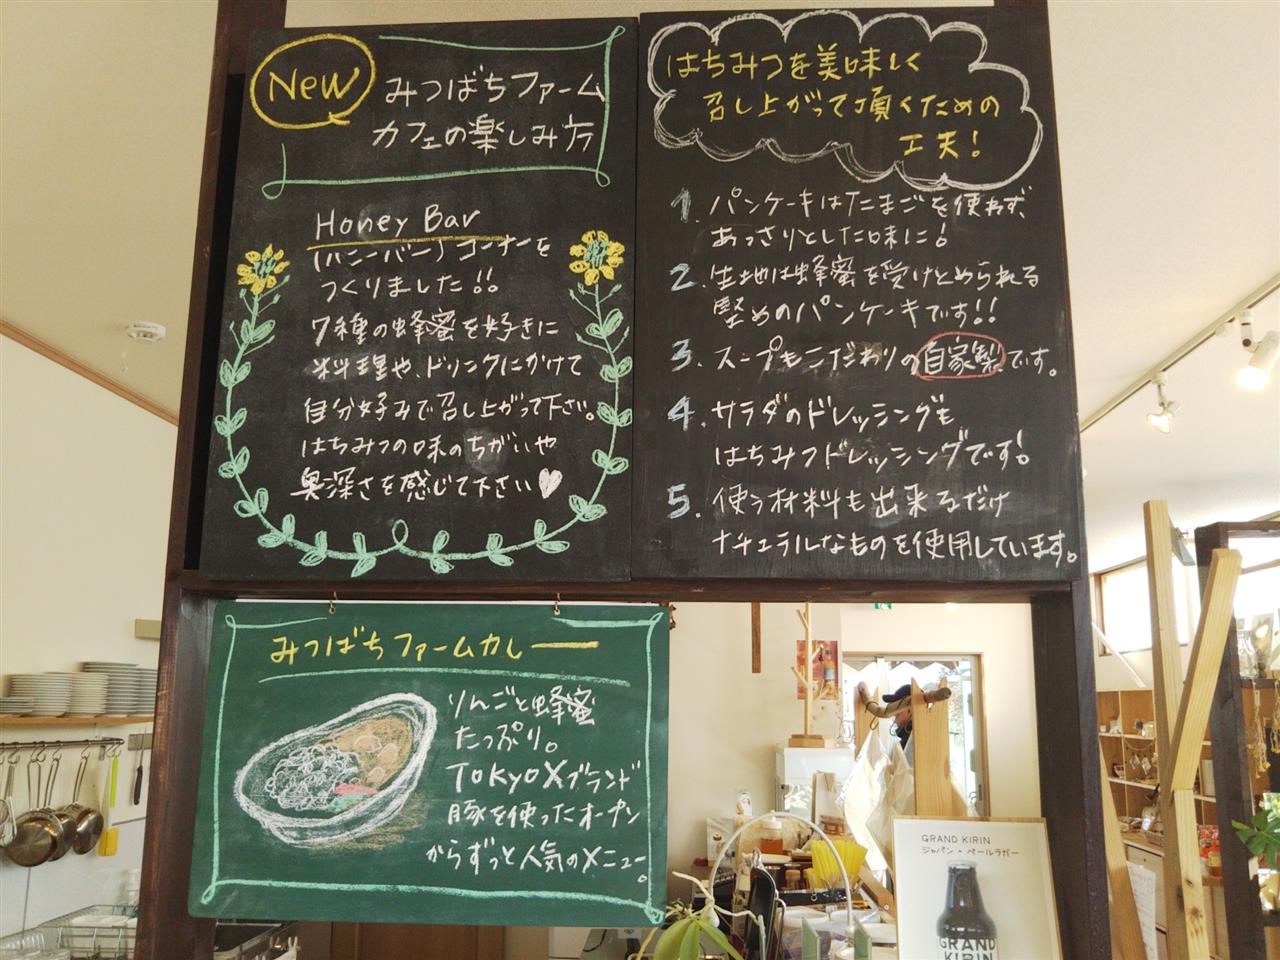 New
みつばちファーム
カフェの楽しみ方
Honey Bar
(ハニーバー)コーナーを
つくりました!!
7種の蜂蜜を好きに
料理や、ドリンクにかけて
自分好みで召し上がって下さい。
はちみつの味のちがいや
奥深さを感じて下さい♡
はちみつを美味しく
召し上がって頂くための
工夫!
1. パンケーキはたまごを使わず、
あっさりとした味に!
2. 生地は蜂蜜を受けとめられる
堅めのパンケーキです!!
3. スープもこだわりの自家製です。
4. サラダのドレッシングも
はちみつドレッシングです!
5. 使う材料も出来るだけ
ナチュラルなものを使用しています。
みつばちファームカレー
りんごと蜂蜜
たっぷり。
TOKYO Xブランド
豚を使ったオープン
からずっと人気のメニュー。
GRAND KIRIN
ジャパン・ペールラガー
GRAND
KIRIN